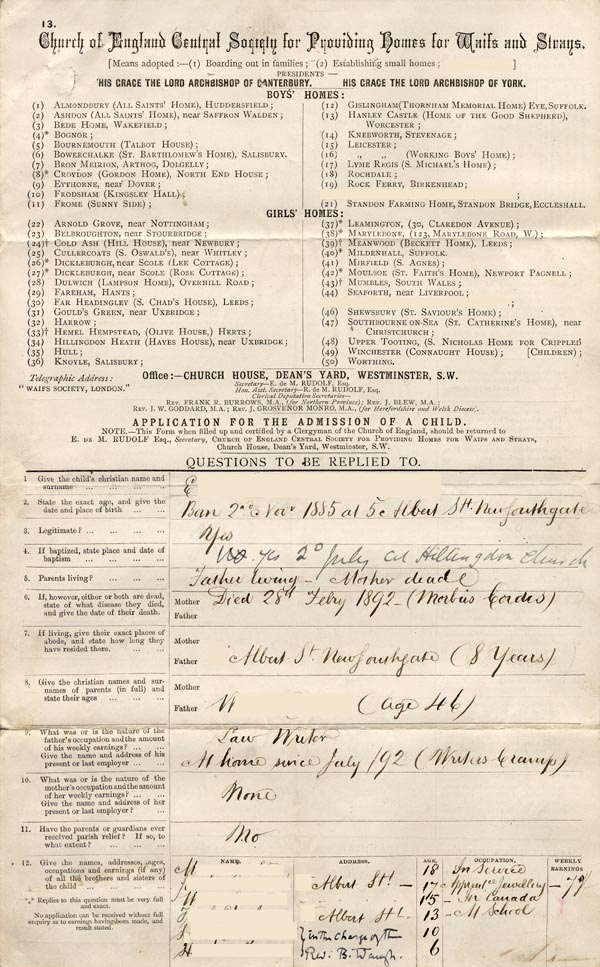 13.
Church of England Central Society for Providing Homes for Waifs and Strays.
[Means adopted:—(1) Boarding out in families; (2) Establishing small homes; ]
PRESIDENTS —
HIS GRACE THE LORD ARCHBISHOP OF CANTERBURY. HIS GRACE THE LORD ARCHBISHOP OF YORK.
BOYS' HOMES:
(1) ALMONDBURY (ALL SAINTS' HOME), HUDDERSFIELD;
(2) ASHDON (ALL SAINTS' HOME), near SAFFRON WALDEN;
(3) BEDE HOME, WAKEFIELD;
(4)* BOGNOR;
(5) BOURNEMOUTH (TALBOT HOUSE);
(6) BOWERCHALKE (ST. BARTHOLOMEW'S HOME), SALISBURY.
(7) BRON MEIRION, ARTHOG, DOLGELLY;
(8)* CROYDON (GORDON HOME), NORTH END HOUSE;
(9) EYTHORNE, near DOVER;
(10) FRODSHAM (KINGSLEY HALL);
(11) FROME (SUNNY SIDE);
(12) GISLINGHAM (THORNHAM MEMORIAL HOME) EYE, SUFFOLK.
(13) HANLEY CASTLE (HOME OF THE GOOD SHEPHERD),
WORCESTER;
(14) KNEEWORTH, STEVENAGE;
(15) LEICESTER;
(16) „ „ (WORKING BOYS' HOME);
(17) LYME REGIS (S. MICHAEL'S HOME);
(18) ROCHDALE;
(19) ROCK FERRY, BIRKENHEAD;
(21) STANDON FARMING HOME, STANDON BRIDGE, ECCLESHALL.
GIRLS' HOMES:
(22) ARNOLD GROVE, near NOTTINGHAM;
(23) BELBROUGHTON, near STOURBRIDGE;
(24)† COLD ASH (HILL HOUSE), near NEWBURY;
(25) CULLERCOATS (S. OSWALD'S), near WHITLEY;
(26)* DICKLEBURGH, near SCOLE (LEE COTTAGE);
(27)* DICKLEBURGH, near SCOLE (ROSE COTTAGE);
(28) DULWICH (LAMPSON HOME), OVERHILL ROAD;
(29) FAREHAM, HANTS;
(30) FAR HEADINGLEY (S. CHAD'S HOUSE), LEEDS;
(31) GOULD'S GREEN, near UXBRIDGE;
(32) HARROW;
(33)† HEMEL HEMPSTEAD, (OLIVE HOUSE,) HERTS;
(34) HILLINGDON HEATH (HAYES HOUSE), near UXBRIDGE;
(35) HULL;
(36) KNOYLE, SALISBURY;
(37)* LEAMINGTON, (30, CLAREDON AVENUE);
(38)* MARYLEBONE, (123, MARYLEBONE ROAD, W.);
(39)† MEANWOOD (BECKETT HOME), LEEDS;
(40)* MILDENHALL, SUFFOLK.
(41) MIRFIELD (S. AGNES);
(42)* MOULSOE (ST. FAITH'S HOME), NEWPORT PAGNELL;
(43)† MUMBLES, SOUTH WALES;
(44) SEAFORTH, near LIVERPOOL;
;
(46) SHEWSBURY (ST. SAVIOUR'S HOME);
(47) SOUTHBOURNE-ON-SEA (ST. CATHERINE'S HOME), near
CHRISTCHURCH;
(48) UPPER TOOTING, (S. NICHOLAS HOME FOR CRIPPLED
(49) WINCHESTER (CONNAUGHT HOUSE); [CHILDREN);
(50) WORTHING.
Telegraphic Address:
"WAIFS SOCIETY, LONDON."
Office:—CHURCH HOUSE, DEAN'S YARD, WESTMINSTER, S.W.
Secretary—E. de M. RUDOLF, Esq.
Hon. Asst. Secretary—R. de M. RUDOLF, Esq.
Clerical Deputation Secretaries—
REV. FRANK R. BURROWS, M.A., (for Northern Province); REV. J. BLEW, M.A.;
REV. J. W. GODDARD, M.A.; REV. J. GROSVENOR MONRO, M.A., (for Herefordshire and Welsh Diocese).
APPLICATION FOR THE ADMISSION OF A CHILD.
NOTE.—This Form when filled up and certified by a Clergyman of the Church of England, should be returned to
E. DE M. RUDOLF Esq., Secretary, CHURCH OF ENGLAND CENTRAL SOCIETY FOR PROVIDING HOMES FOR WAIFS AND STRAYS,
Church House, Dean's Yard, Westminster, S.W.
QUESTIONS TO BE REPLIED TO.
1 Give the child's christian name and
surname ... ... ... ...
E
2. State the exact age, and give the
date and place of birth ... ...
Born 2nd Novr 1885 at 5c Albert St. New Southgate
3. Legitimate? ... ... ... ...
Yes
4. If baptized, state place and date of
baptism ... ... ... ...
No yes 2d July at Hillingdon Church
5. Parents living? ... ... ... ...
Father living - Mother dead
6. If, however, either or both are dead,
state of what disease they died,
and give the date of their death.
Mother Died 28th Febry 1892 - (Morbus Cordis)
Father
7. If living, give their exact places of
abode, and state how long they
have resided there. ... ...
Mother
Father Albert St. New Southgate (8 Years)
8. Give the christian names and sur-
names of parents (in full) and
state their ages ... ... ...
Mother
Father W (Age 46)
9. What was or is the nature of the
father's occupation and the amount
of his weekly earnings? ... ...
Give the name and address of his
present or last employer ... ...
Law Writer
At home since July /92 (Writers Cramp)
10. What was or is the nature of the
mother's occupation and the amount
of her weekly earnings? ... ...
Give the name and address of her
present or last employer? ...
None
11. Have the parents or guardians ever
received parish relief? If so, to
what extent? ... ... ...
No
12. Give the names, addresses, ages,
occupations and earnings (if any)
of all the brothers and sisters of
the child ... ... ... ...
*** Replies to this question must be very full
and exact.
No application can be received without full
enquiry as to earnings having been made, and
result stated.
NAME. ADDRESS. AGE. OCCUPATION. WEEKLY EARNINGS
M 18 In Service
J Albert St. - 17 Apprent'ce Jewellery - 7/-
W 15 - In Canada
J Albert St. - 13 - At School
S In the charge of the 10
H Rev. B. Waugh. 6